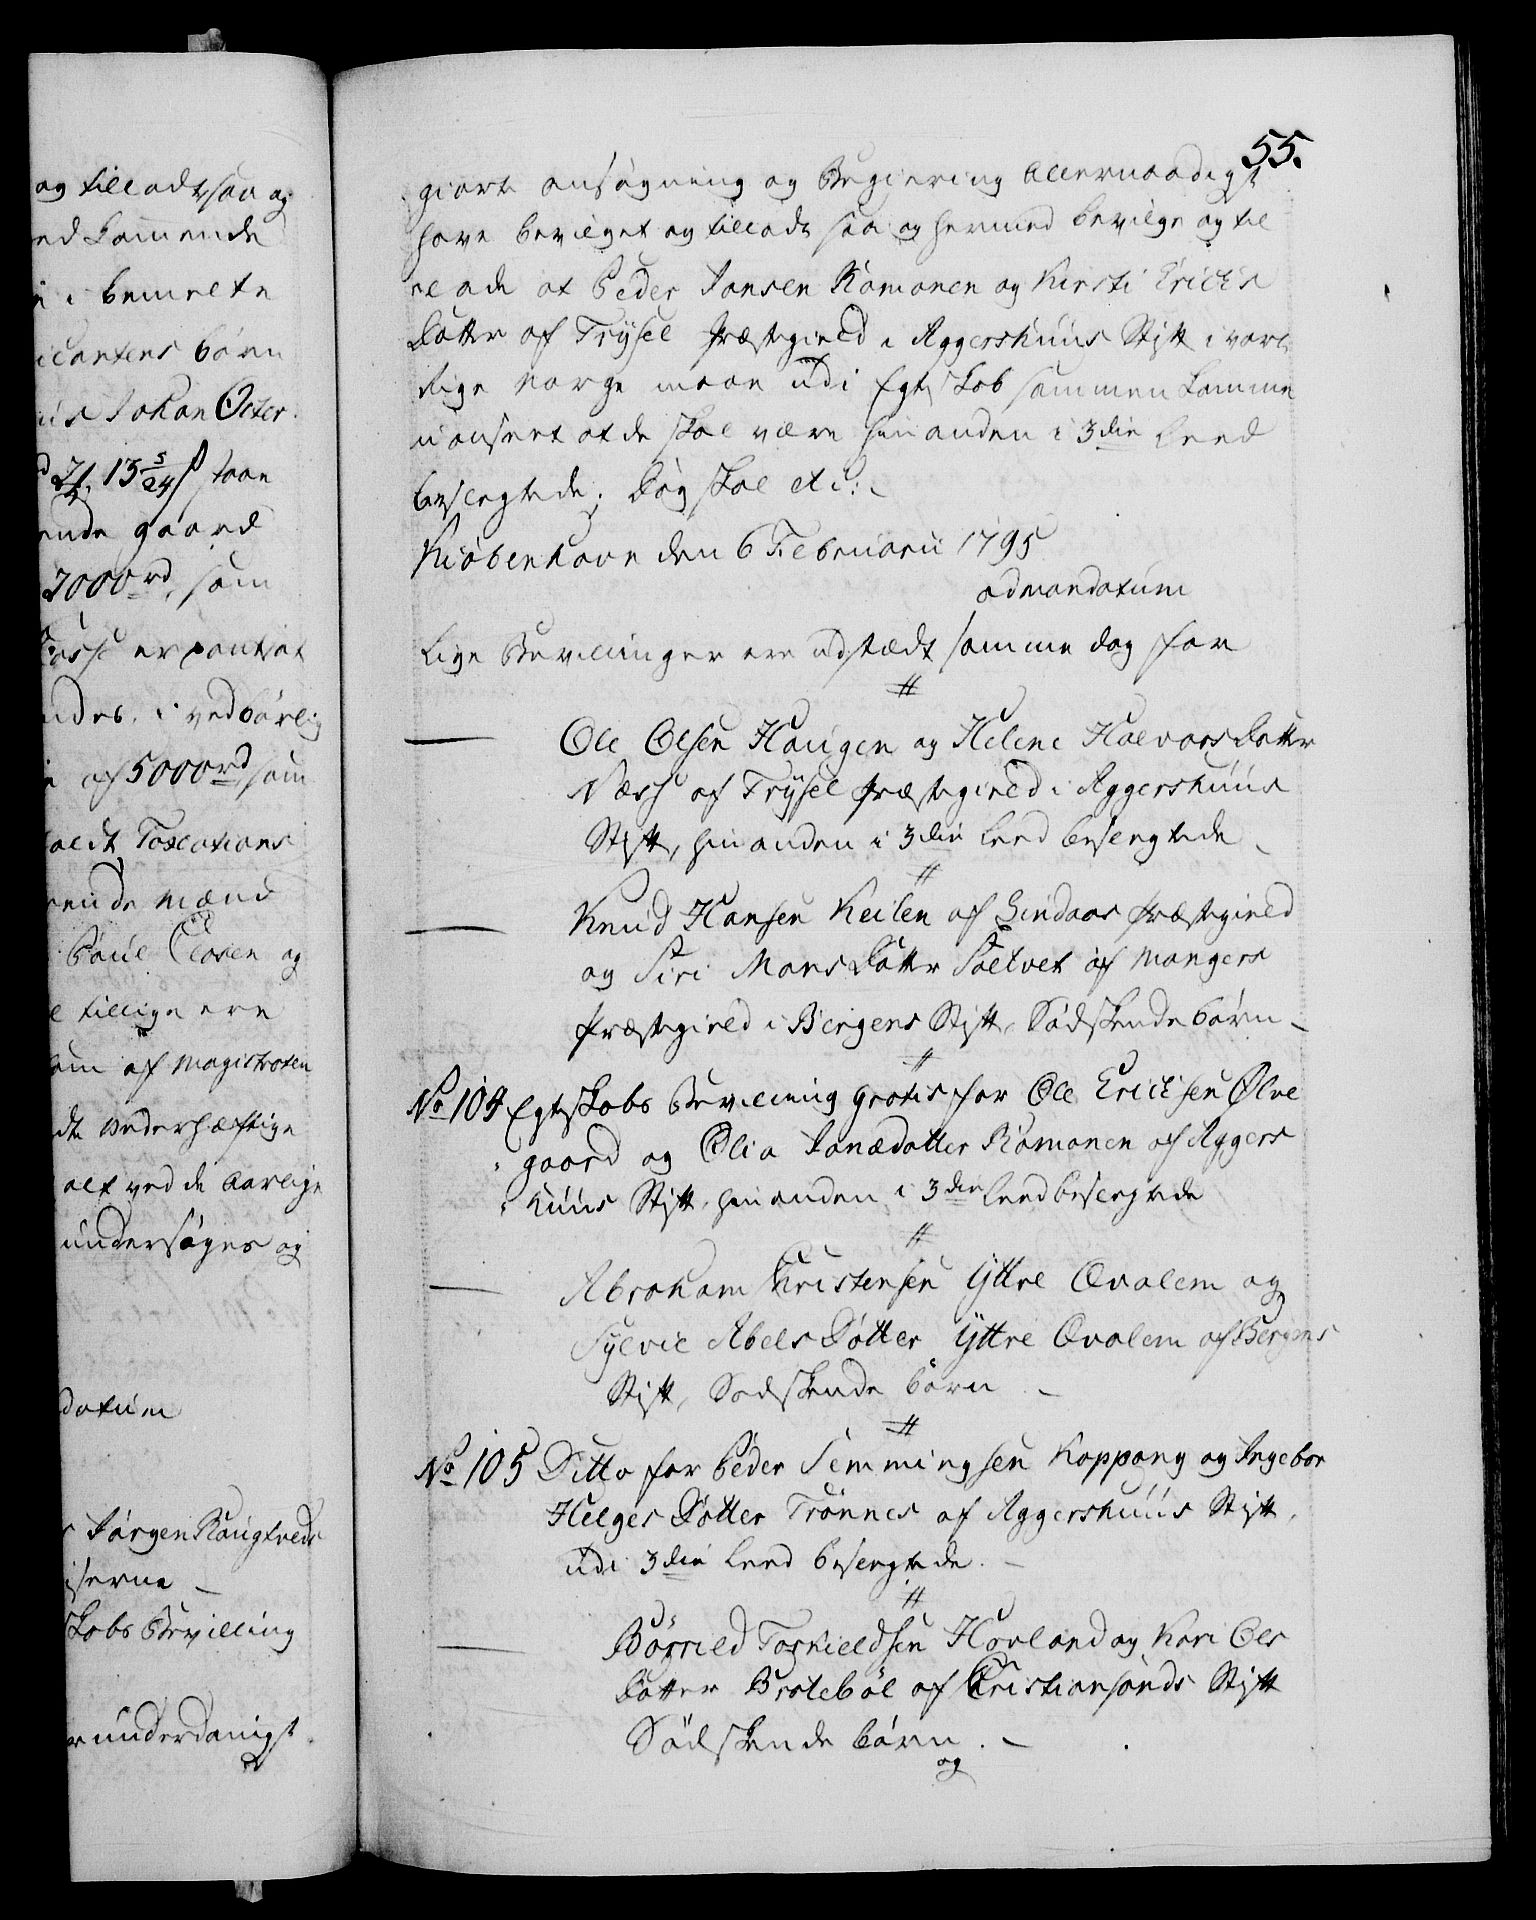 og tilladt, saa og
ed kommende
i bemelte
icantens börn
Johan Peter
13 5/24 s staae
ende gaard
2000 rd, som
er pantsat
ndes, i vedbörlig
af 5000 rd som
Taxations
ende mænd
Poul Closen og
tillige ere
som af Magistraten
dte underhæftige
alt ved de aarlige
undersöges og
datum
Jörgen Rougtvedt
iserne
skobs Bevilling
underdanigst
55.
giorte ansögning og Begiering allernaadigst
have bevilget og tilladt saa og hermed bevilge og til
lade at Peder Jansen Römonen og Kirsti Erichs
Datter af Trÿsel Præstegield i Aggershuus Stift i vort
Rige Norge maae udi Egteskab sammen komme
uanseet at de skal være hinanden i 3die Leed
beslegtede; Dog skal etc:
Kiöbenhavn den 6 Februarii 1795
ad mandatum
Lige Bevillinger ere udstædt samme dag for
#
Ole Olsen Haugen og Helene Halvorsdatter
Næss af Trÿsel Præstegield i Aggershuus
Stift, hinanden i 3die Leed beslegtede
#
Knud Hansen Keilen af Lindaas Præstegield
og Siri Mons Datter Soltvet af Mangers
Præstegield i Bergens Stift, Södskendebörn
#
No 104 Egteskabs Bevilling gratis for Ole Erichsen Ölve
gaard og Olia Jonædatter Römonen af Aggers
huus Stift, hinanden i 3die Leed beslegtede
#
Abraham Christensen Yttre Qvalem og
Sylvie Abels Dotter Yttre Qvalem af Bergens
Stift, Sodskende börn
#
No 105 Ditto for Peder Semmingsen Koppang og Ingebor
Helges Dotter Trönnes af Aggershuus Stift,
udi 3die Leed beslegtede.
#
Börrild Torkieldsen Hovland og Kari Ols
Datter Broteböl af Christiansands Stift
Södskende börn.
og